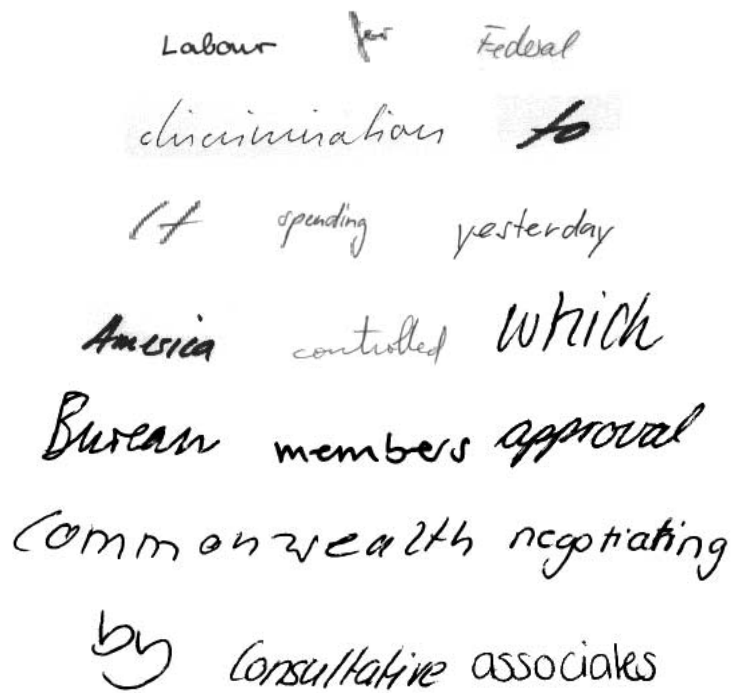 Labour for Federal
discrimination to
It spending yesterday
America controlled which
Bureau members approval
Commonwealth negotiating
by Consultative associates